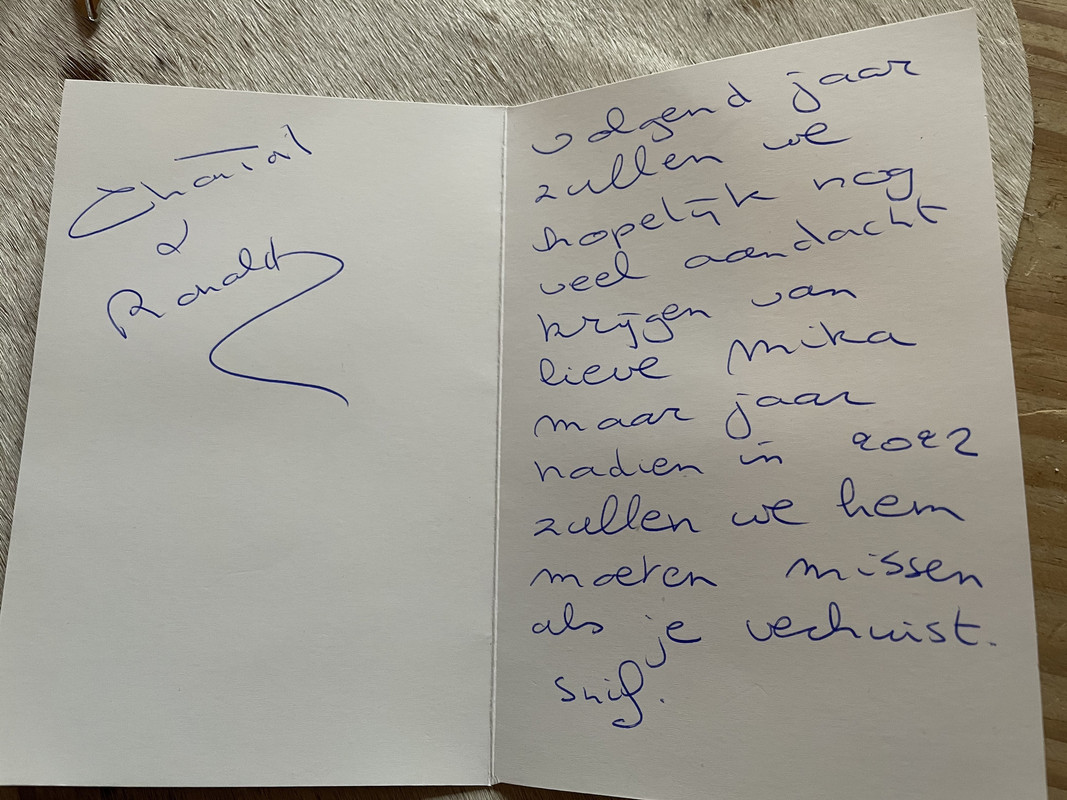 Chantal
&
Ronald
volgend jaar
zullen we
hopelijk nog
veel aandacht
krijgen van
lieve Mika
maar jaar
nadien in 2022
zullen we hem
moeten missen
als je verhuist.
Snif.